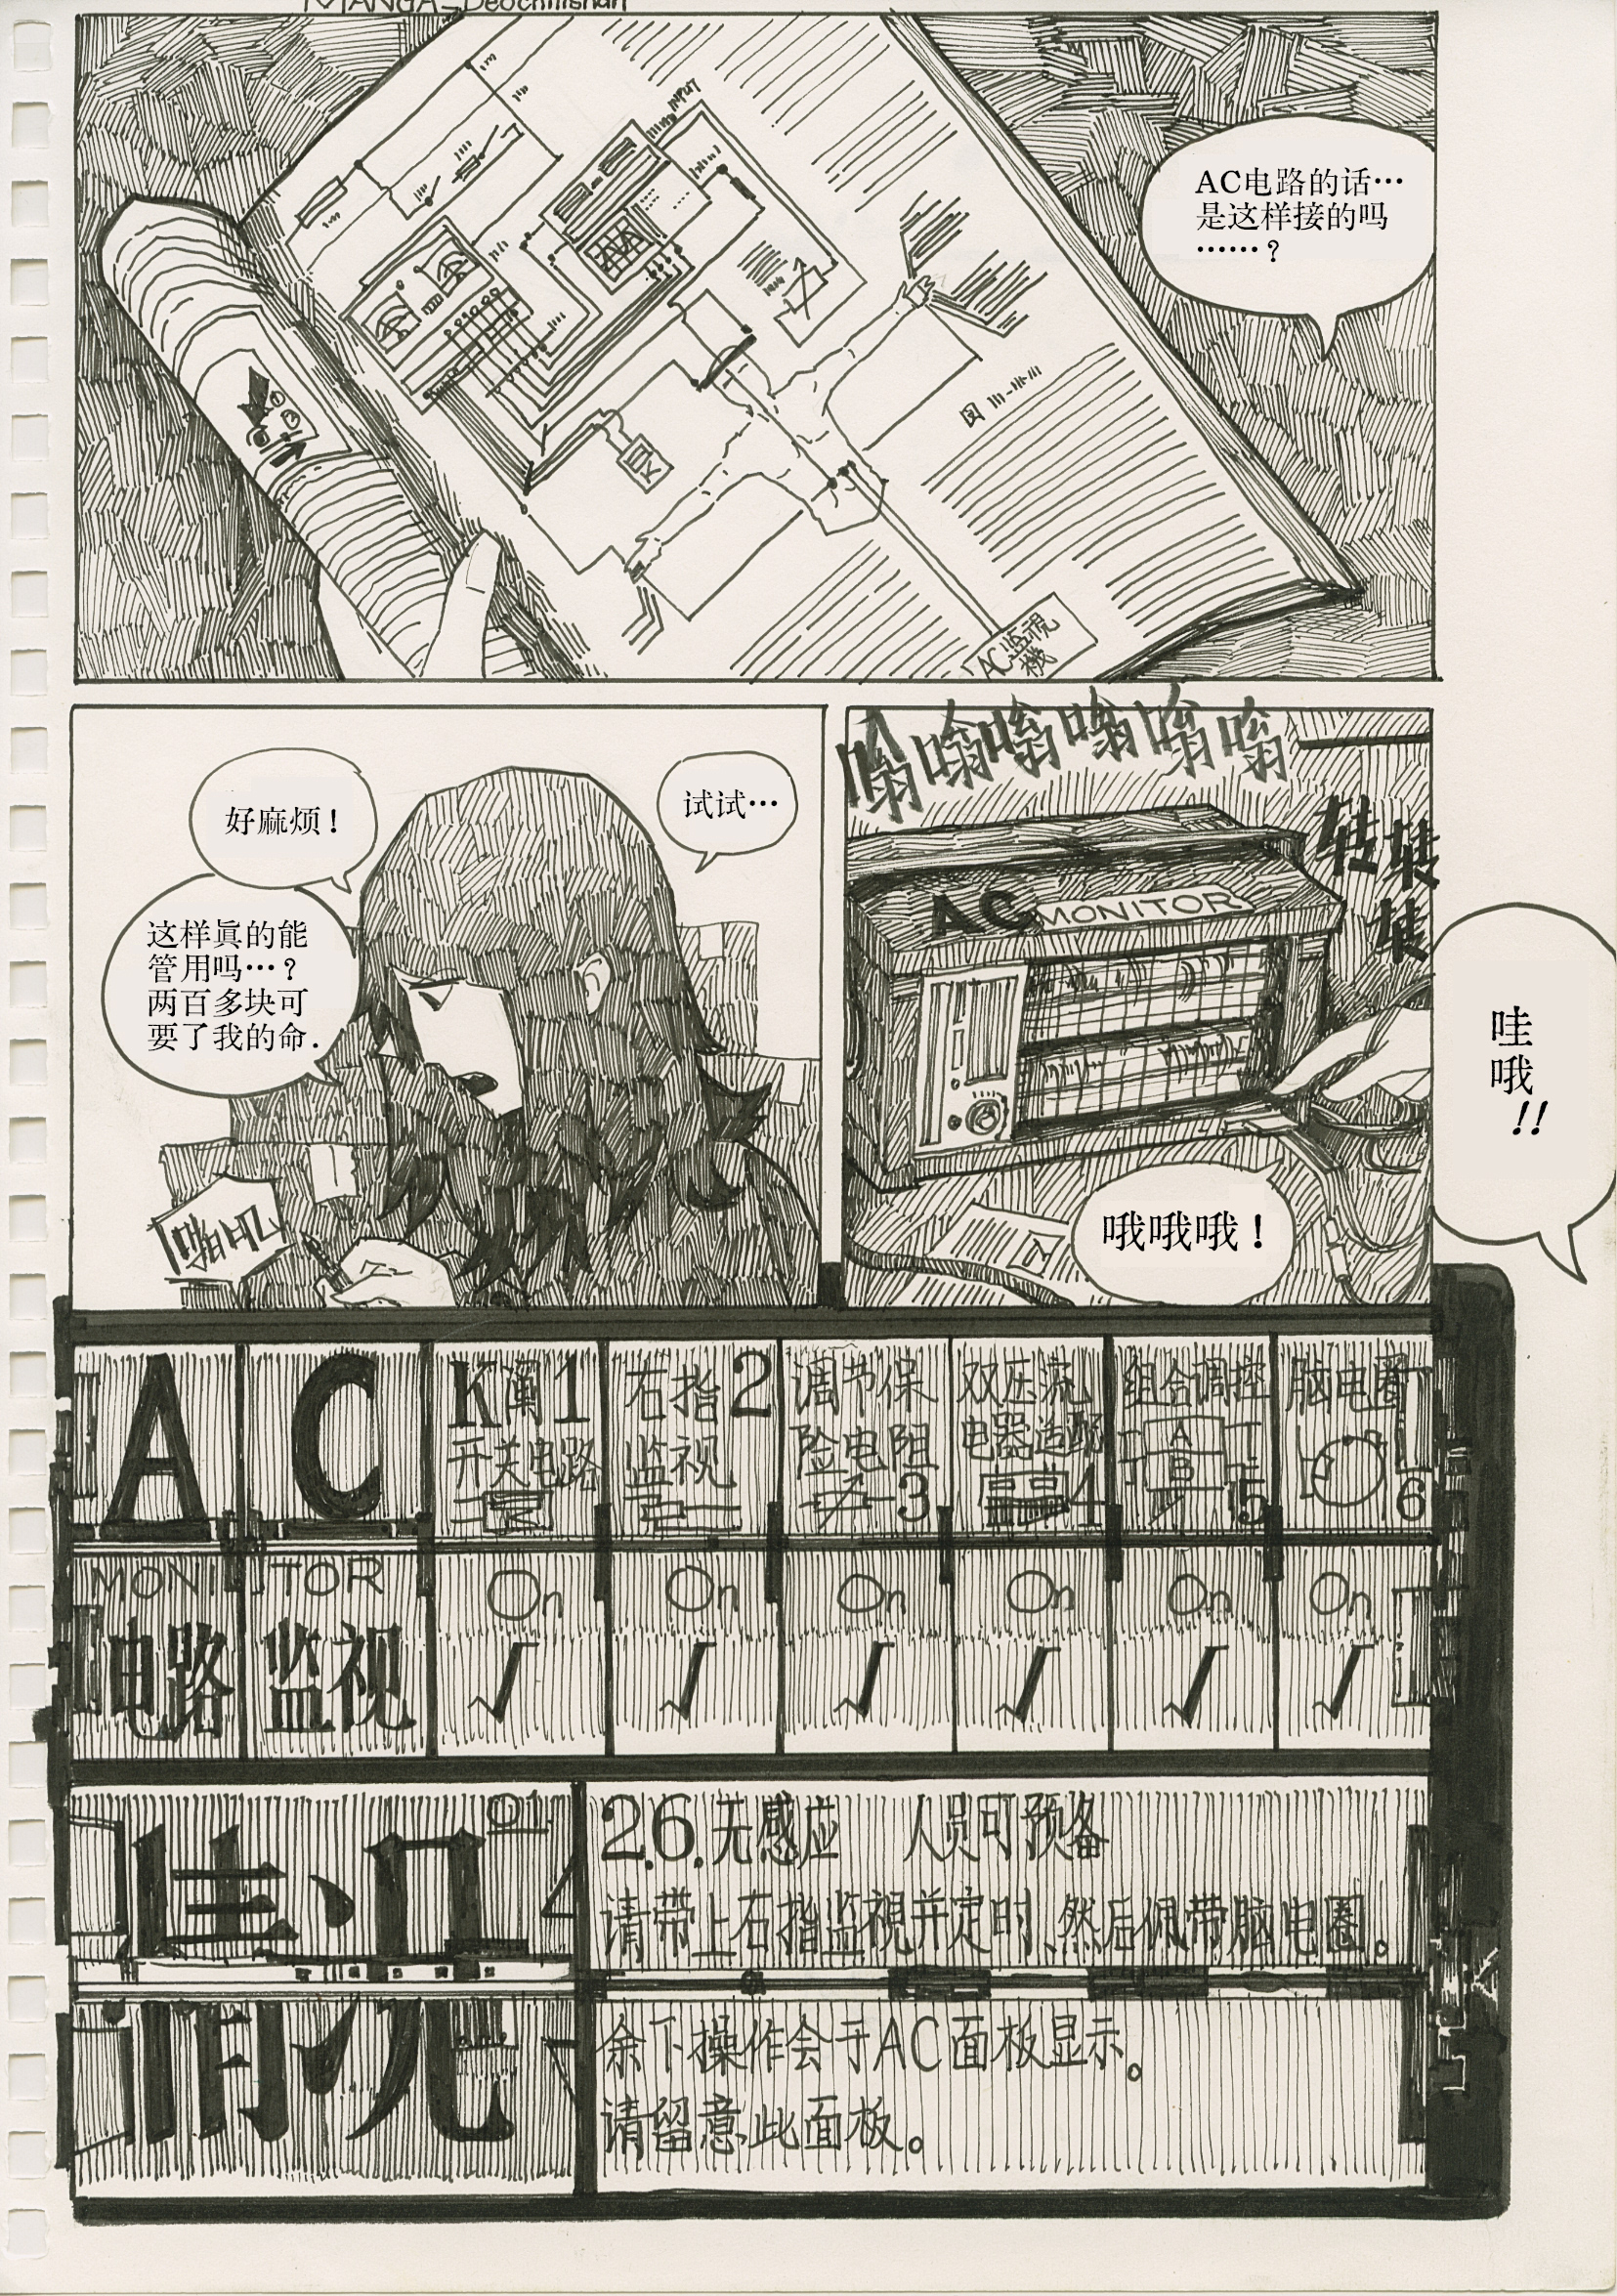 MANGA_Deochillshan
AC电路的话…
是这样接的吗
……？
INPUT
图
AC监视
機
好麻烦！
试试…
这样眞的能
管用吗…？
两百多块可
要了我的命．
啪叽
嗡嗡嗡嗡嗡嗡
转转
转
AC MONITOR
哇
哦
!!
哦哦哦！
A C
K阐1
开关电路
右指2
监视
调节保
险电阻
3
双压流
电器适配
4
组合调控
A
B
5
脑电圈
6
MONITOR
电路 监视
On On On On On On
√ √ √ √ √ √
情况
01
2.6.无感应 人员可预备
请带上右指监視并定时、然后佩带脑电圈。
余下操作会于AC面板显示。
请留意此面板。